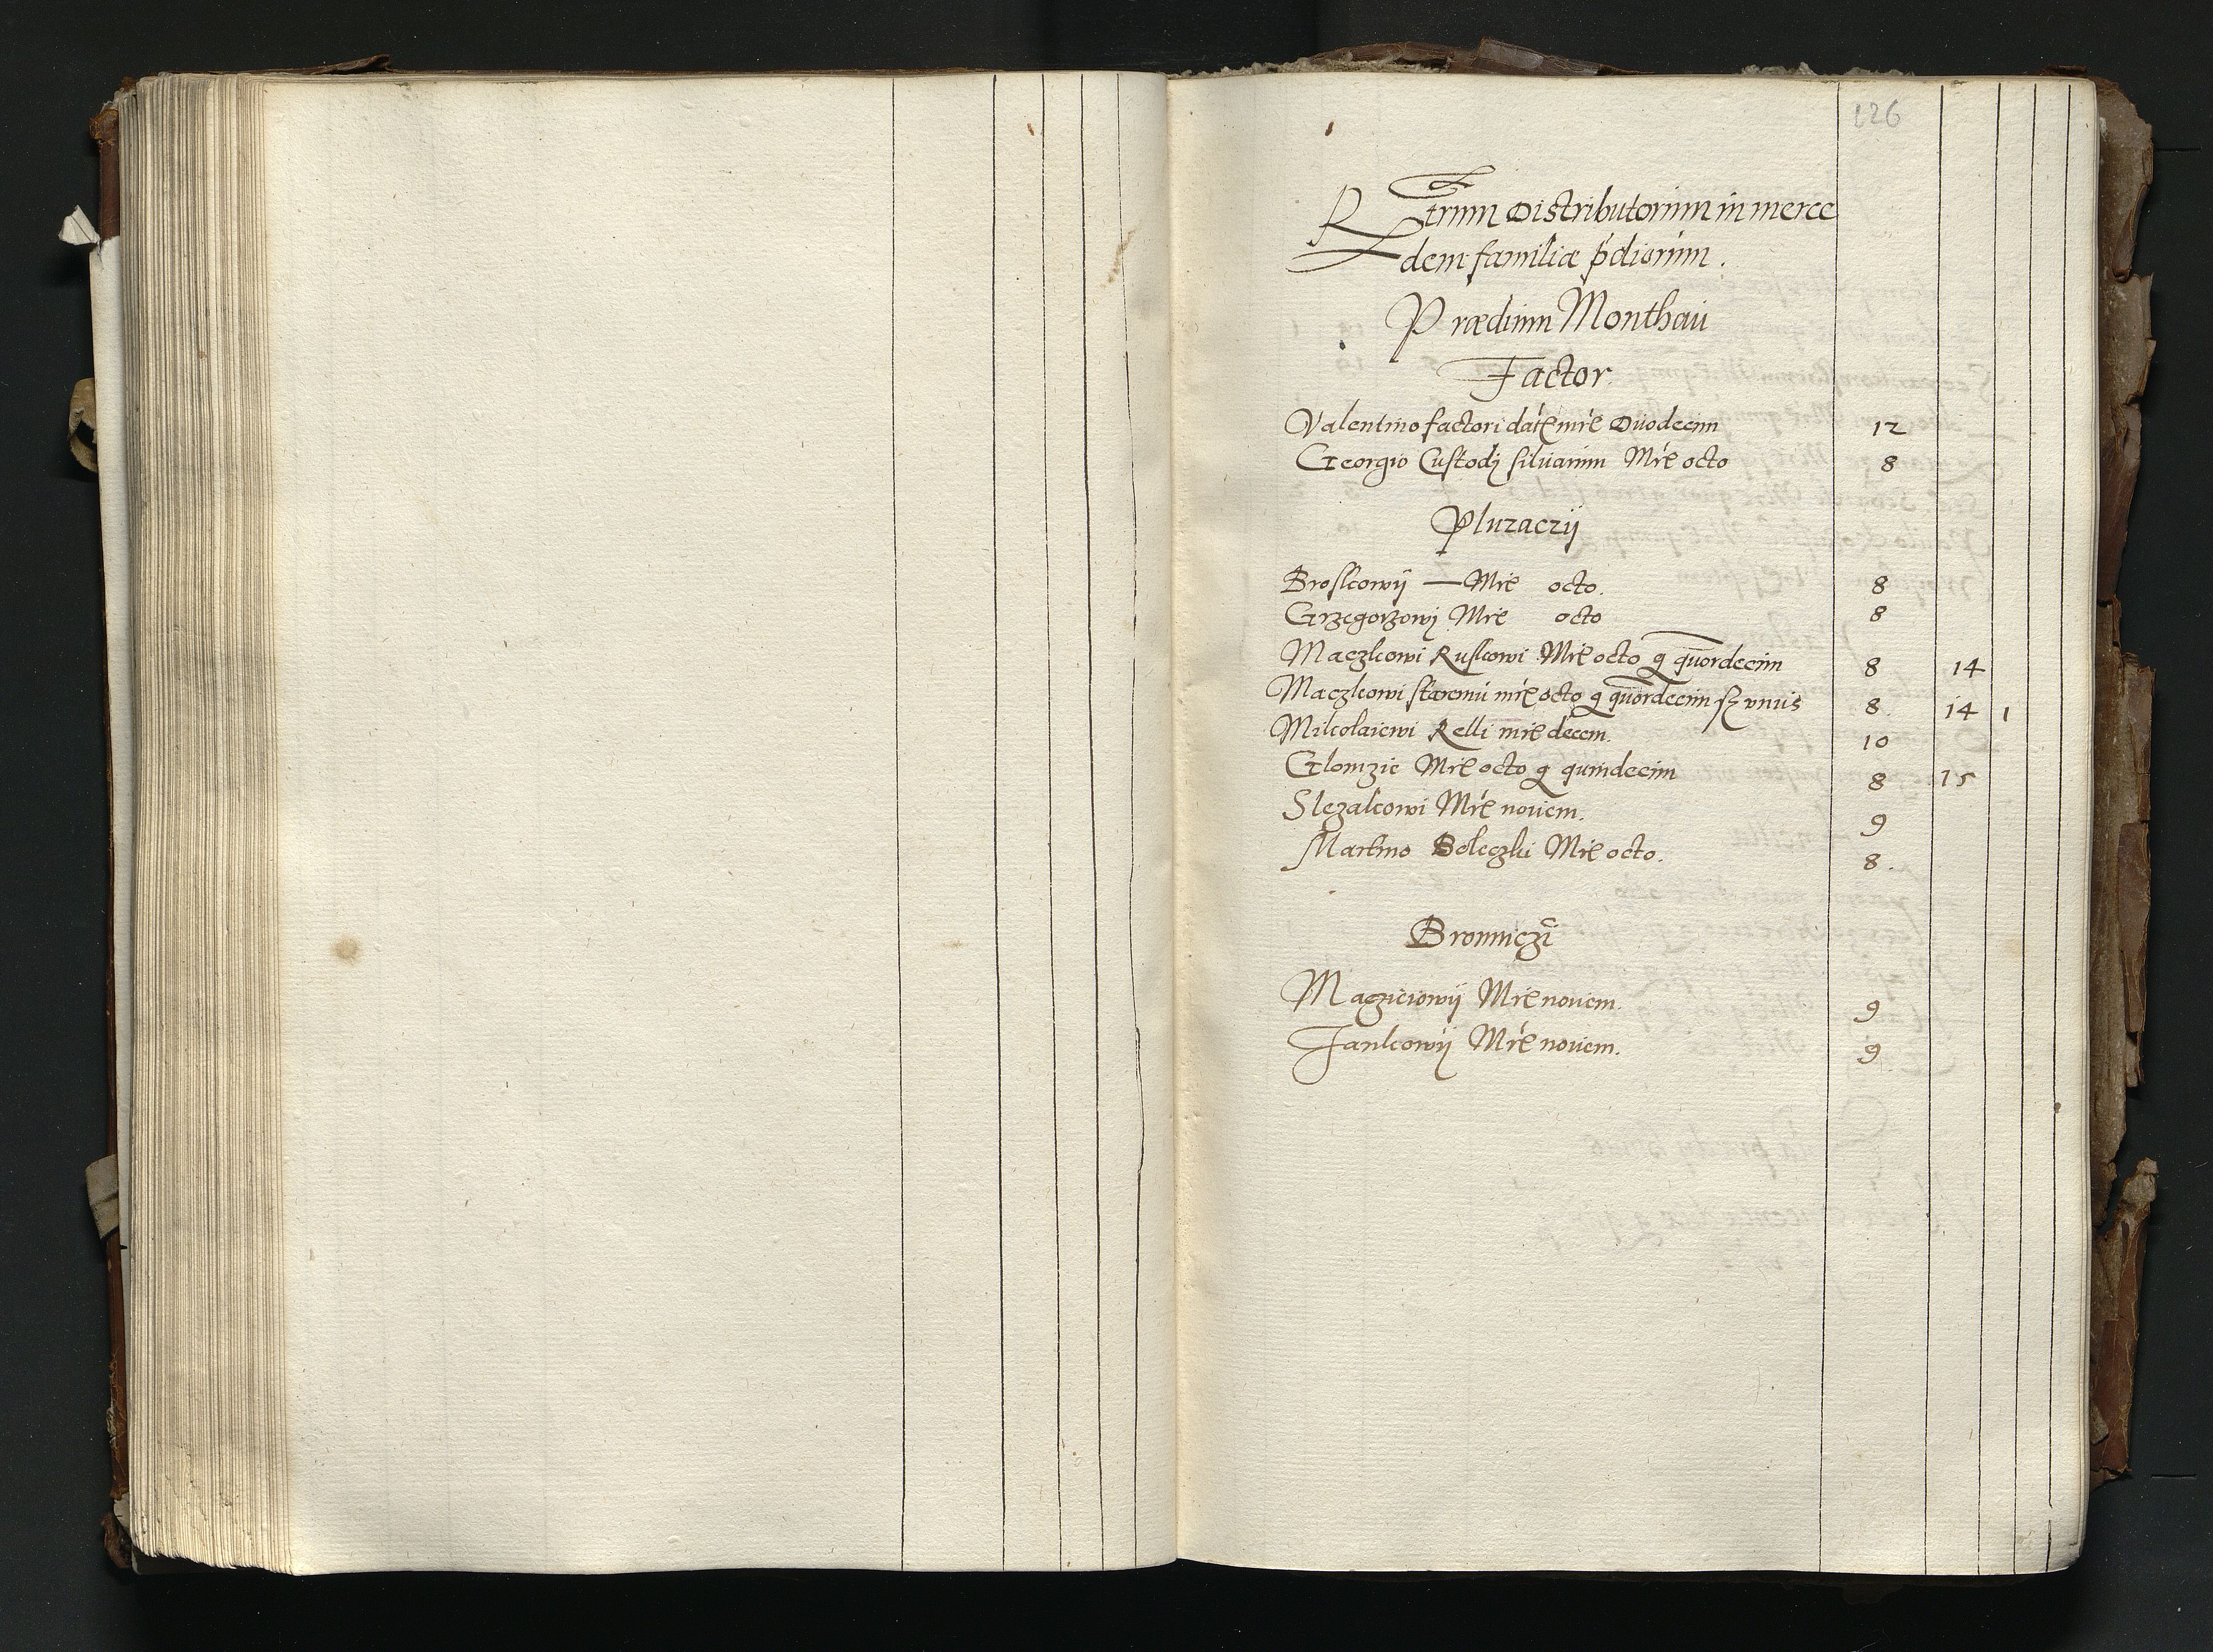 126
Rtrum Distributorum in merce
dem familiæ p̄diorum.
Prædium Monthau
Factor
Valentino factori datæ mr̃e Duodecim 12
Georgio Custodj siluarum Mr̃e octo 8
Pluzaczij
Broskowij — Mr̃e octo. 8
Grzegorzowj Mr̃e octo 8
Maczkowi Ruskowi Mr̃e octo g quordecim 8 14
Maczkowi staremu mr̃e octo g quordecim sz vnus 8 14 1
Mikolaiewi Relli mr̃e decem. 10
Glomzie Mr̃e octo g quindecim 8 15
Slezakowi Mr̃e nouem. 9
Martino Boleczki Mr̃e octo. 8.
Bronniczi
Macziciowij Mr̃e nouem. 9
Jankowij Mr̃e nouem. 9